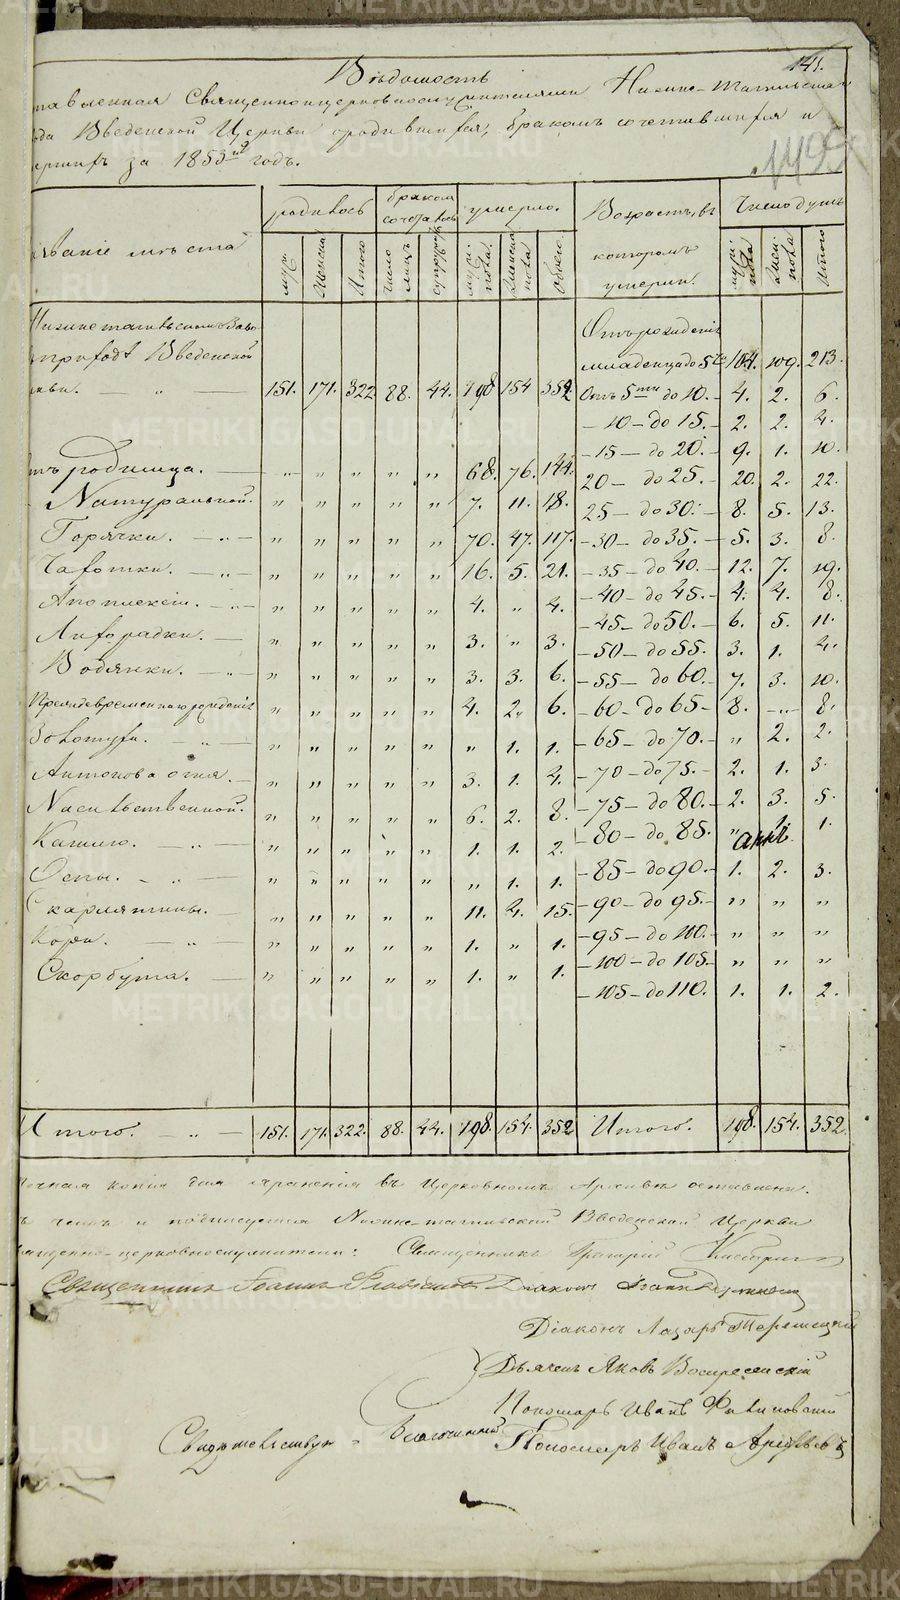 141.
Вѣдомость
тавленная Священноцерковнослужителями Нижне-Тагильска
ода Введенской Церкви о родившихся, бракомъ сочетавшихся и
ершихъ за 1853й годъ.
1499
званіе мѣста
родилось
бракомъ сочеталось
умерло.
Возрастъ, въ которомъ умерли.
Число душъ
муж.
Женска
Итого
число лицъ
супружествъ
муж: пола.
Женска пола
Обоего.
муж: пола
Жен: пола
Итого
Нижнетагильскаго Заво
приходѣ Введенской
ркви. — „ — 151. 171. 322 88. 44. 198 154 352
Отъ рожденія
младенца до 5ти 104. 109. 213.
Отъ 5ти до 10. — 4. 2. 6.
— 10 — до 15. — 2. 2. 4.
— 15 — до 20. — 9. 1. 10.
20 — до 25. — 20. 2. 22.
25 — до 30. — 8. 5. 13.
— 30 — до 35. — 5. 3. 8.
— 35 — до 40. — 12. 7. 19.
— 40 — до 45. — 4. 4. 8.
— 45 — до 50. — 6. 5. 11.
— 50 — до 55. 3. 1. 4.
— 55 — до 60. 7. 3. 10.
— 60 — до 65 — 8. — „ — 8.
— 65 — до 70. — „ 2. 2.
— 70 — до 75. — 2. 1. 3.
— 75 — до 80. — 2. 3. 5.
— 80 — до 85. „ 1. 1.
— 85 — до 90. — 1. 2. 3.
— 90 — до 95. — „ „ „
— 95 — до 100. — „ „ „
— 100 — до 105. — „ „ „
— 105 — до 110. 1. 1. 2.
тъ родимца. — „ „ „ „ „ 68. 76. 144.
Натуральной. „ „ „ „ „ 7. 11. 18.
Горячки. — „ — „ „ „ „ „ 70. 47. 117.
Чахотки. — „ — „ „ „ „ „ 16. 5. 21.
Апоплексіи. — „ — „ „ „ „ „ 4. „ 4.
Лихорадки. — „ „ „ „ „ 3. „ 3.
Водянки. — „ — „ „ „ „ „ 3. 3. 6.
Преждевременнаго рожденія „ „ „ „ „ 4. 2. 6.
Золотухи. — „ — „ „ „ „ „ „ 1. 1.
Антонова огня. — „ „ „ „ „ 3. 1. 4.
Насильственной. „ „ „ „ „ 6. 2. 8.
Кашлю. „ — „ „ „ „ „ 1. 1. 2.
Оспы. — „ — „ „ „ „ „ „ 1. 1.
Скарлятины. — „ „ „ „ „ 11. 4. 15.
Кори. — „ — „ „ „ „ „ 1. „ 1.
Скорбута. — „ „ „ „ „ 1. „ 1.
Итого. „ — 151. 171. 322. 88. 44. 198. 154. 352 Итого. 198. 154. 352.
точная копія для храненія въ Церковномъ Архивѣ оставлена.
ъ чемъ и подписуемся Нижне-тагильской Введенской Церкви
ященно-церковнослужители: Священникъ Григорій
Священникъ Іоаннъ Діаконъ Іоаннъ
Діаконъ Лазарь
Дьячекъ Яковъ Воскресенскій
Пономарь Иванъ
Свидѣтельствую — Благочинный Пономарь Иванъ
METRIKI.GASO-URAL.RU